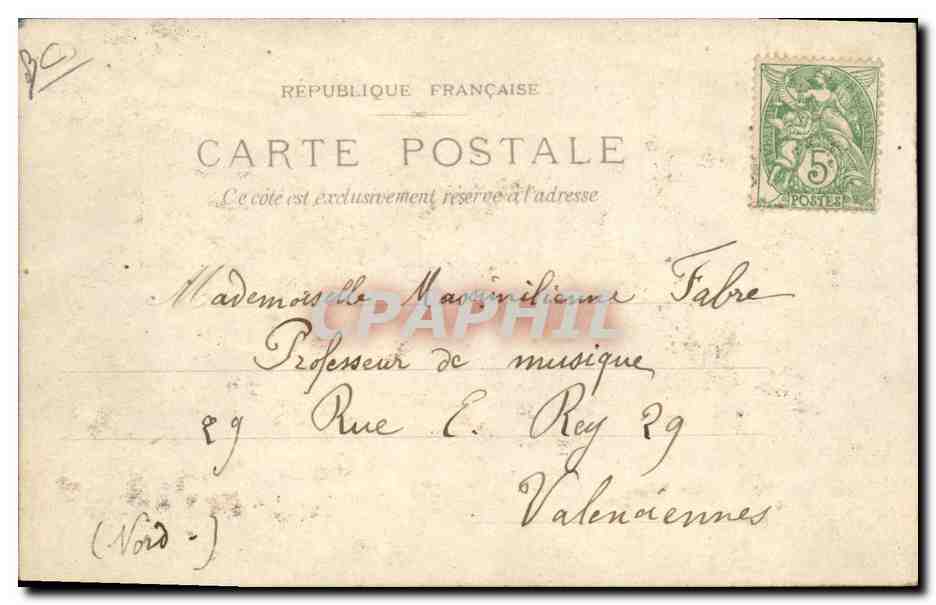 BC
RÉPUBLIQUE FRANÇAISE
CARTE POSTALE
Ce côté est exclusivement réservé à l'adresse
5c
POSTES
Mademoiselle Maximilienne Fabre
CPAPHIL
Professeur de musique
29 Rue E. Rey 29
Valenciennes
(Nord-)